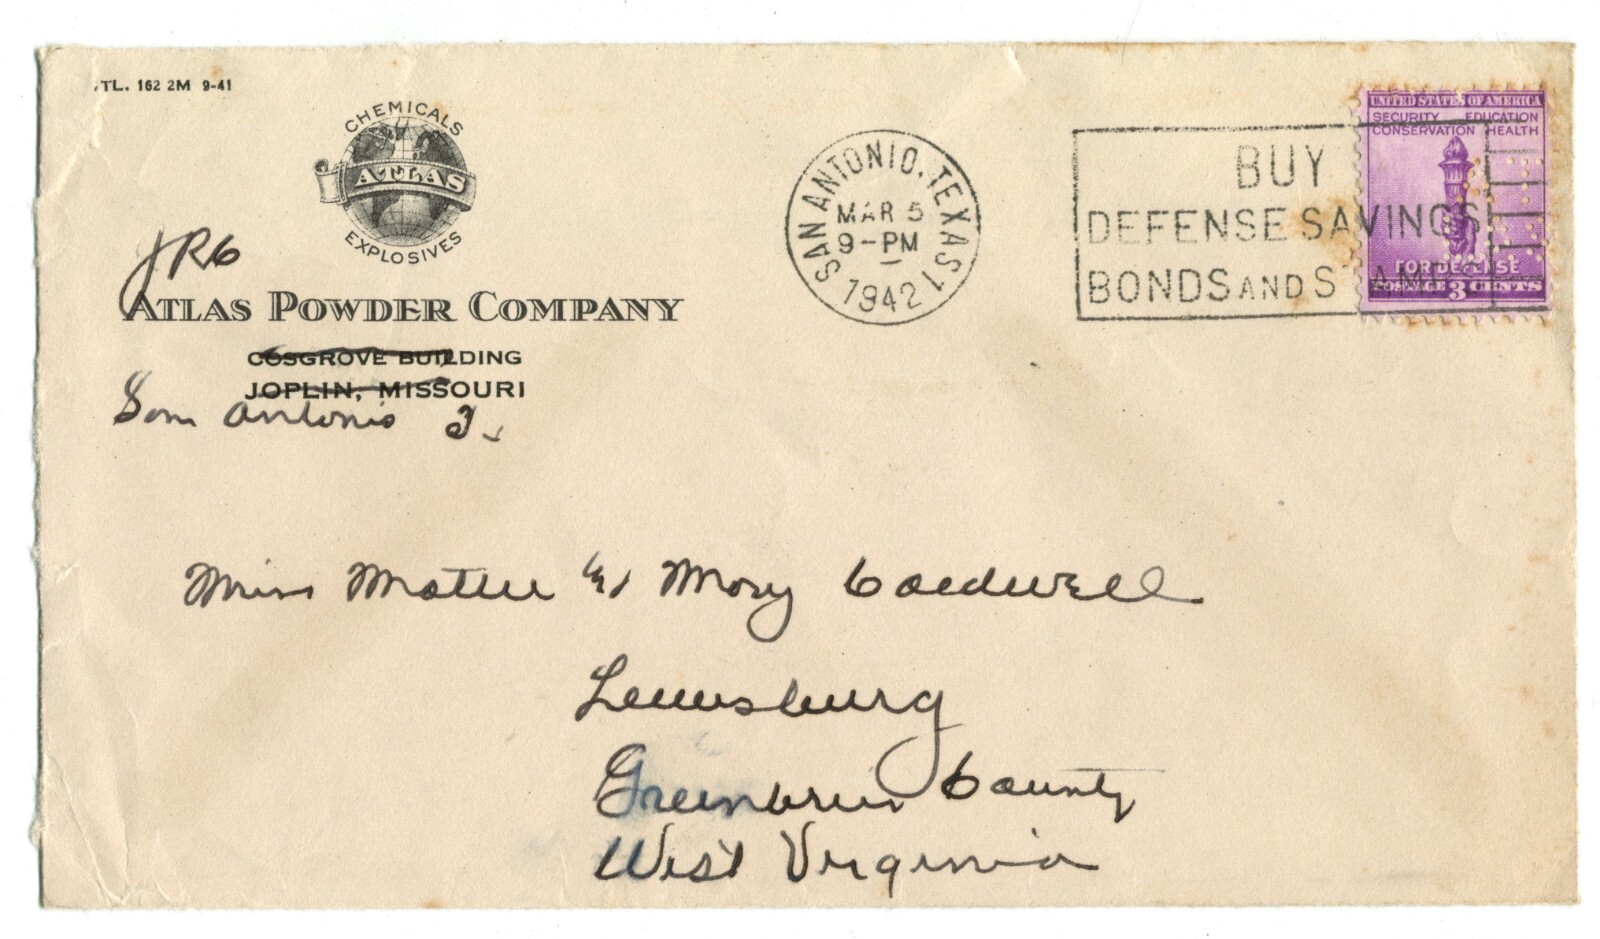 TL. 162 2M 9-41
CHEMICALS
ATLAS
EXPLOSIVES
JRG
ATLAS POWDER COMPANY
COSGROVE BUILDING
JOPLIN, MISSOURI
San Antonio T.
SAN ANTONIO, TEXAS 1
MAR 5
9-PM
1942
BUY
DEFENSE SAVINGS
BONDS AND STAMPS
UNITED STATES OF AMERICA
SECURITY EDUCATION
CONSERVATION HEALTH
FOR DEFENSE
POSTAGE 3 CENTS
Miss Mattie & Mary Caldwell
Lewisburg
Greenbrier County
West Virginia